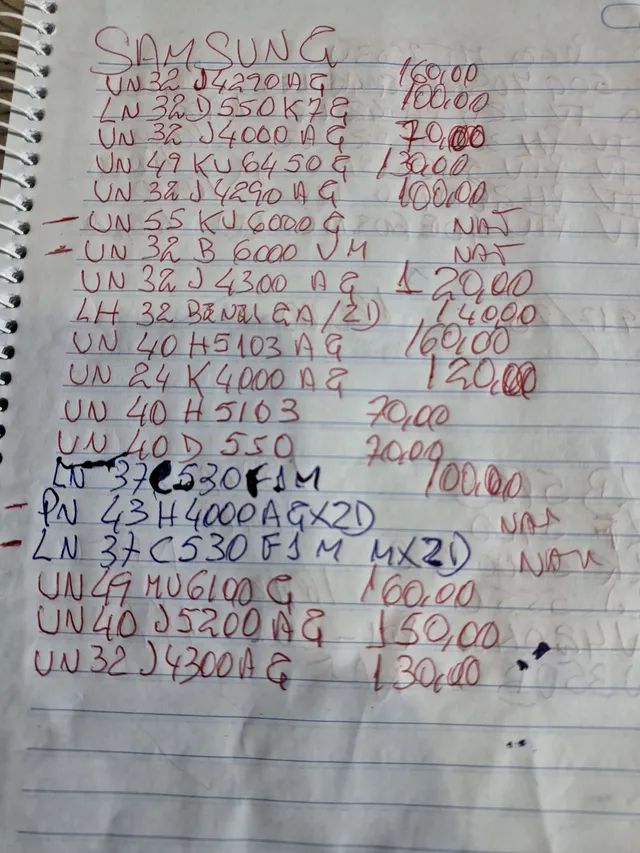 SAMSUNG
UN32J4290AG 160,00
LN32D550K7G 100,00
UN32J4000AG 70,00
UN49KU6450G 130,00
UN32J4290AG 100,00
- UN55KU6000G NAT
- UN32B6000VM NAT
UN32J4300AG 120,00
LH32 GA/ZD 140,00
UN40H5103AG 160,00
UN24K4000AG 120,00
UN40H5103 70,00
UN40D550 70,00
LN37C530F1M 100,00
- PN43H4000AGXZD
- LN37C530F1M MXZD
UN49MU6100G 160,00
UN40J5200AG 150,00
UN32J4300AG 130,00